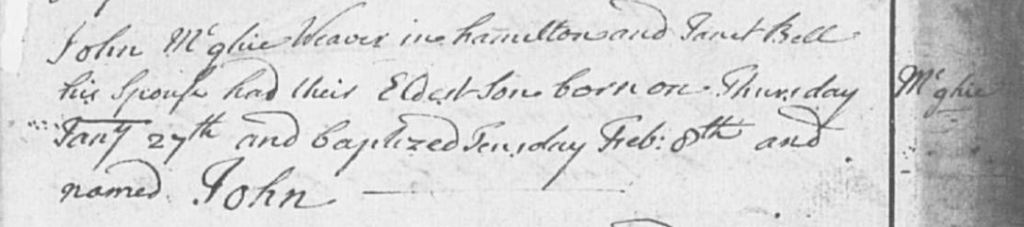 John Mcghie Weaver in hamilton and Janet Bell
his Spouse had their Eldest Son born on Thursday
Mcghie
Jany 27th and baptized Teusday Feb: 8th and
named John